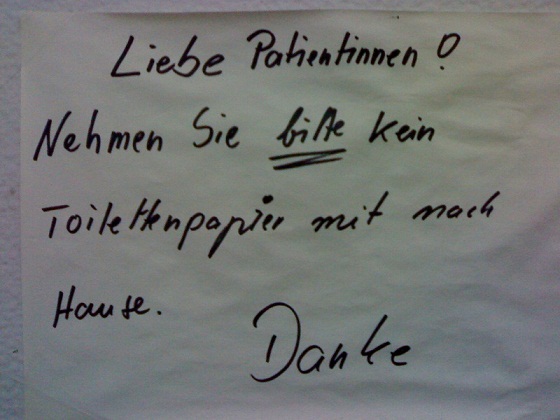 Liebe Patientinnen!
Nehmen Sie bitte kein
Toilettenpapier mit nach
Hause.
Danke